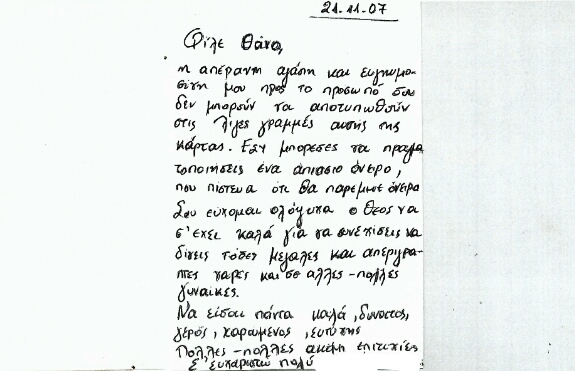 21·11·07
Φίλε Θάνο,
η απέραντη αγάπη και ευγνωμο-
σύνη μου προς το πρόσωπό σου
δεν μπορούν να αποτυπωθούν
στις λίγες γραμμές αυτής της
κάρτας. Εσύ μπόρεσες να πραγμα
τοποιήσεις ένα άπιαστο όνειρο,
που πίστευα ότι θα παρέμενε όνειρο
Σου εύχομαι ολόψυχα ο Θεός να
σ' έχει καλά για να συνεχίσεις να
δίνεις τόσες μεγάλες και απερίγρα-
πτες χαρές και σε άλλες-πολλές
γυναίκες.
Να είσαι πάντα καλά, δυνατός,
γερός, χαρούμενος, ευτυχής
Πολλες-πολλες ακόμη επιτυχίες
Σ' ευχαριστώ πολύ